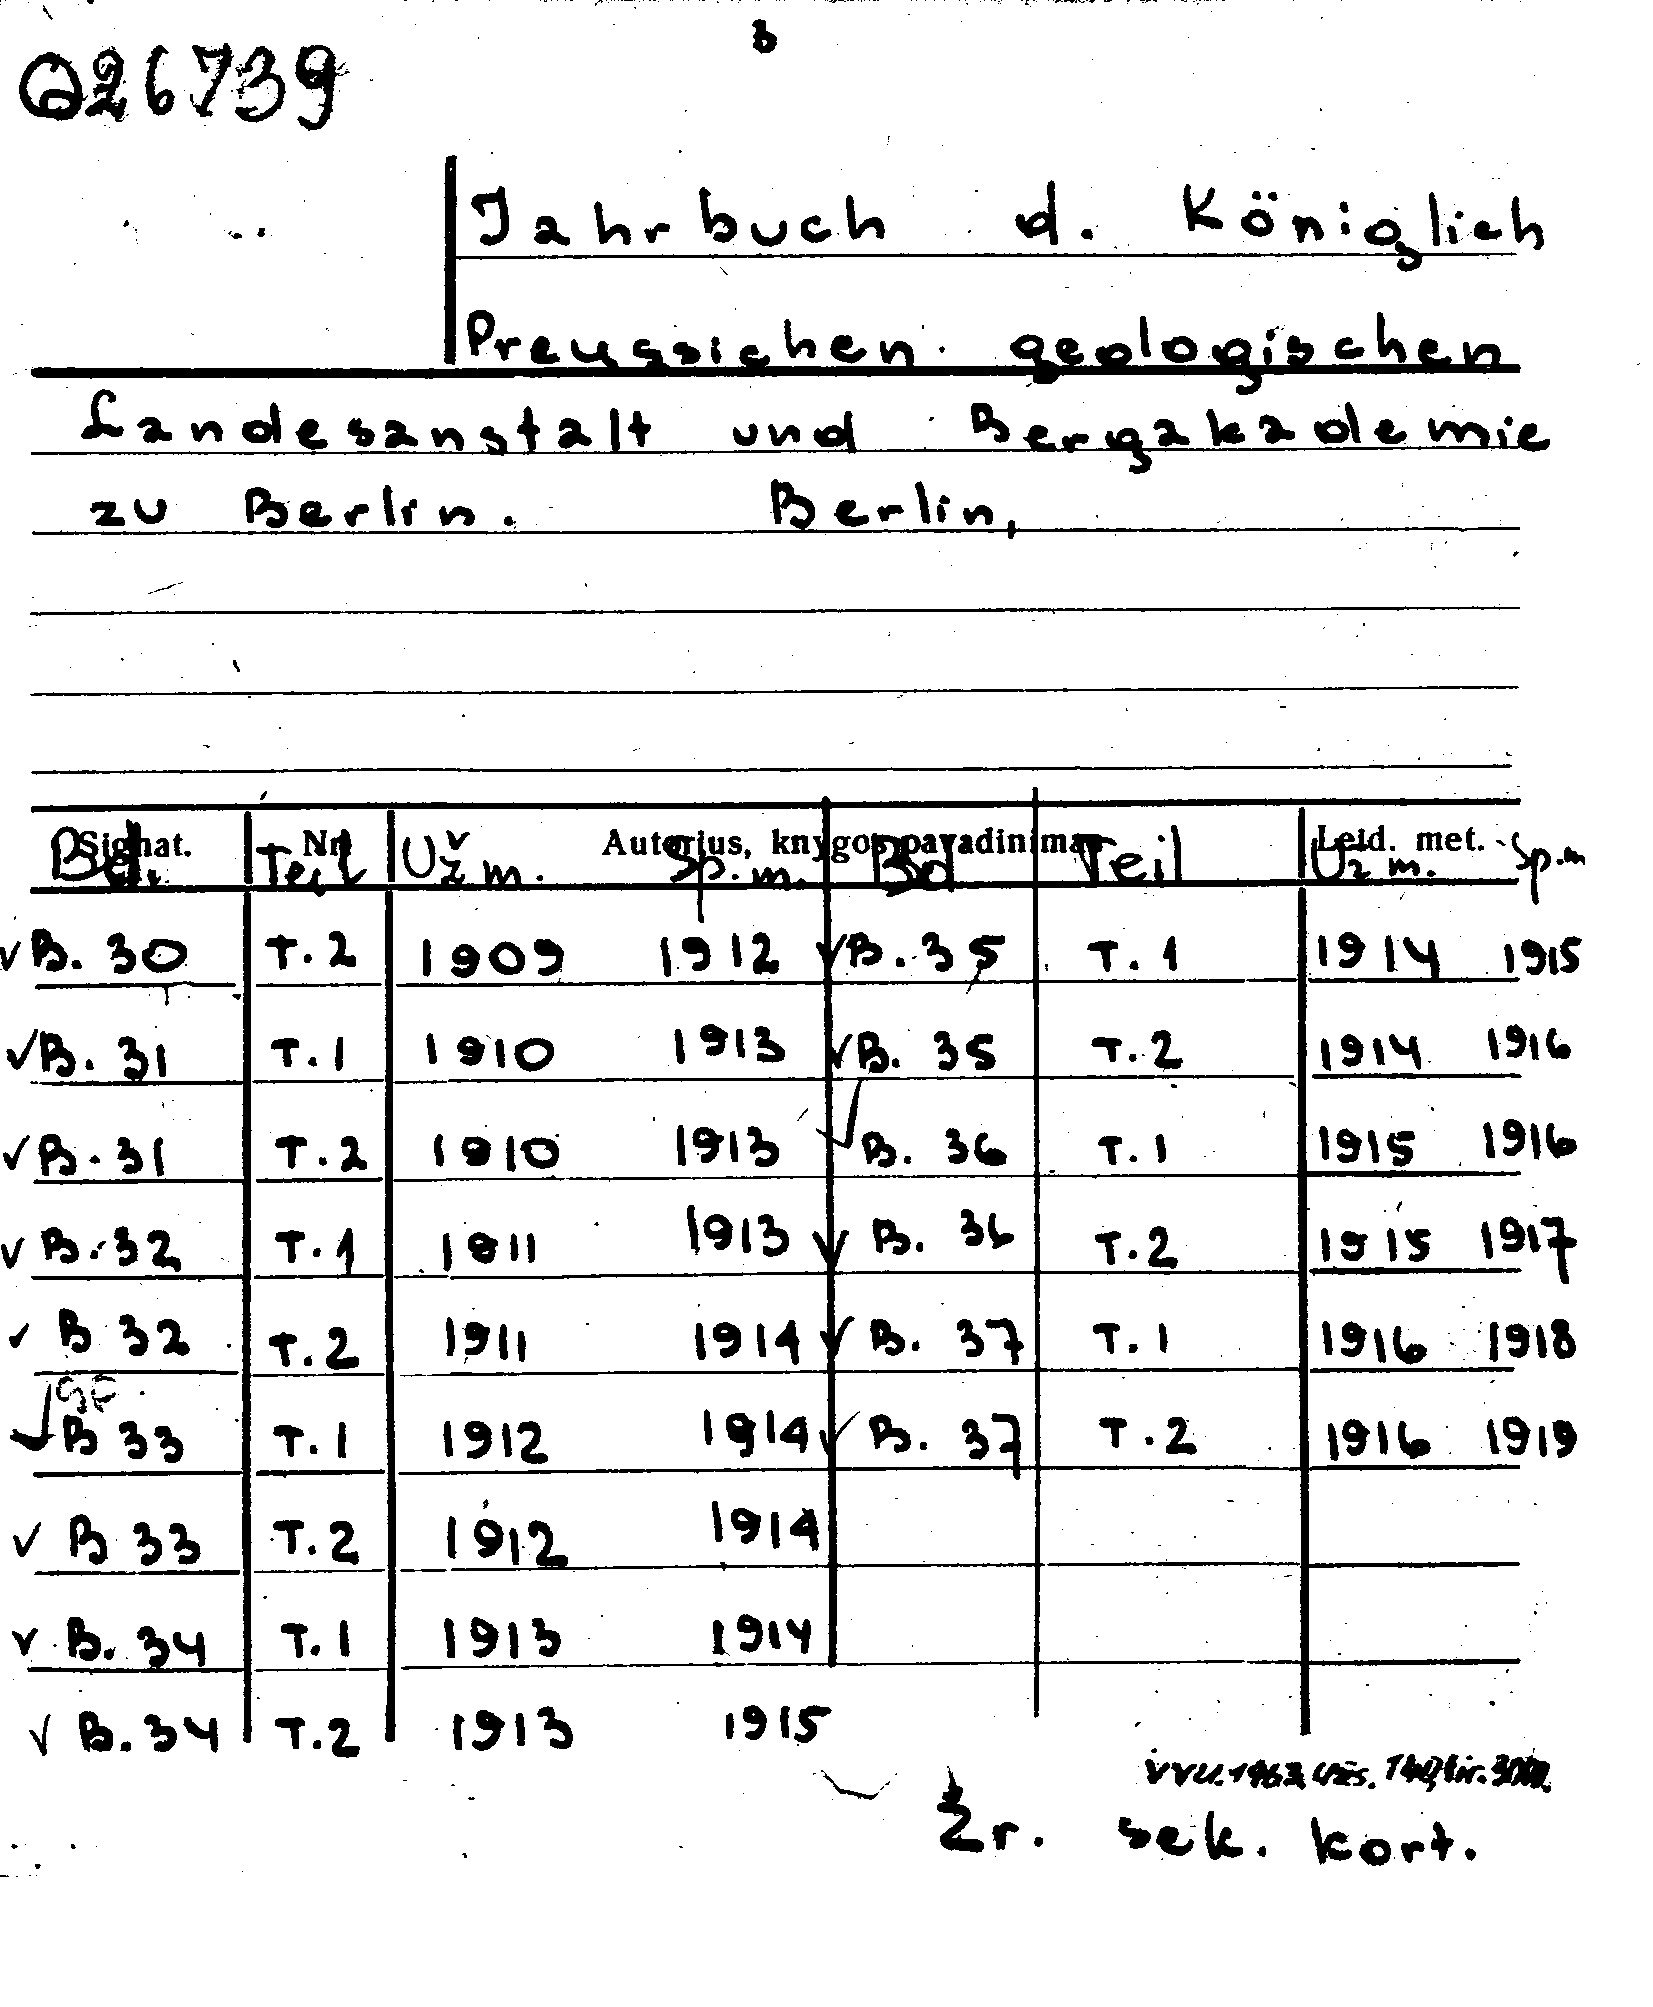 3
Q26739
Jahrbuch d. Königlich
Preussichen geologischen
Landesanstalt und Bergakademie
zu Berlin. Berlin,
Signat. Nr. Autorius, knygos pavadinimas Leid. met.
Bd. Teil Už m. Sp. m. Bd Teil Uz m. Sp. m
√ B. 30 T. 2 1909 1912 √ B. 35 T. 1 1914 1915
√ B. 31 T. 1 1910 1913 √ B. 35 T. 2 1914 1916
√ B. 31 T. 2 1910 1913 √ B. 36 T. 1 1915 1916
√ B. 32 T. 1 1911 1913 √ B. 36 T. 2 1915 1917
√ B 32 T. 2 1911 1914 √ B. 37 T. 1 1916 1918
√ B 33 T. 1 1912 1914 √ B. 37 T. 2 1916 1919
√ B 33 T. 2 1912 1914
√ B. 34 T. 1 1913 1914
√ B. 34 T. 2 1913 1915
Žr. sek. kort.